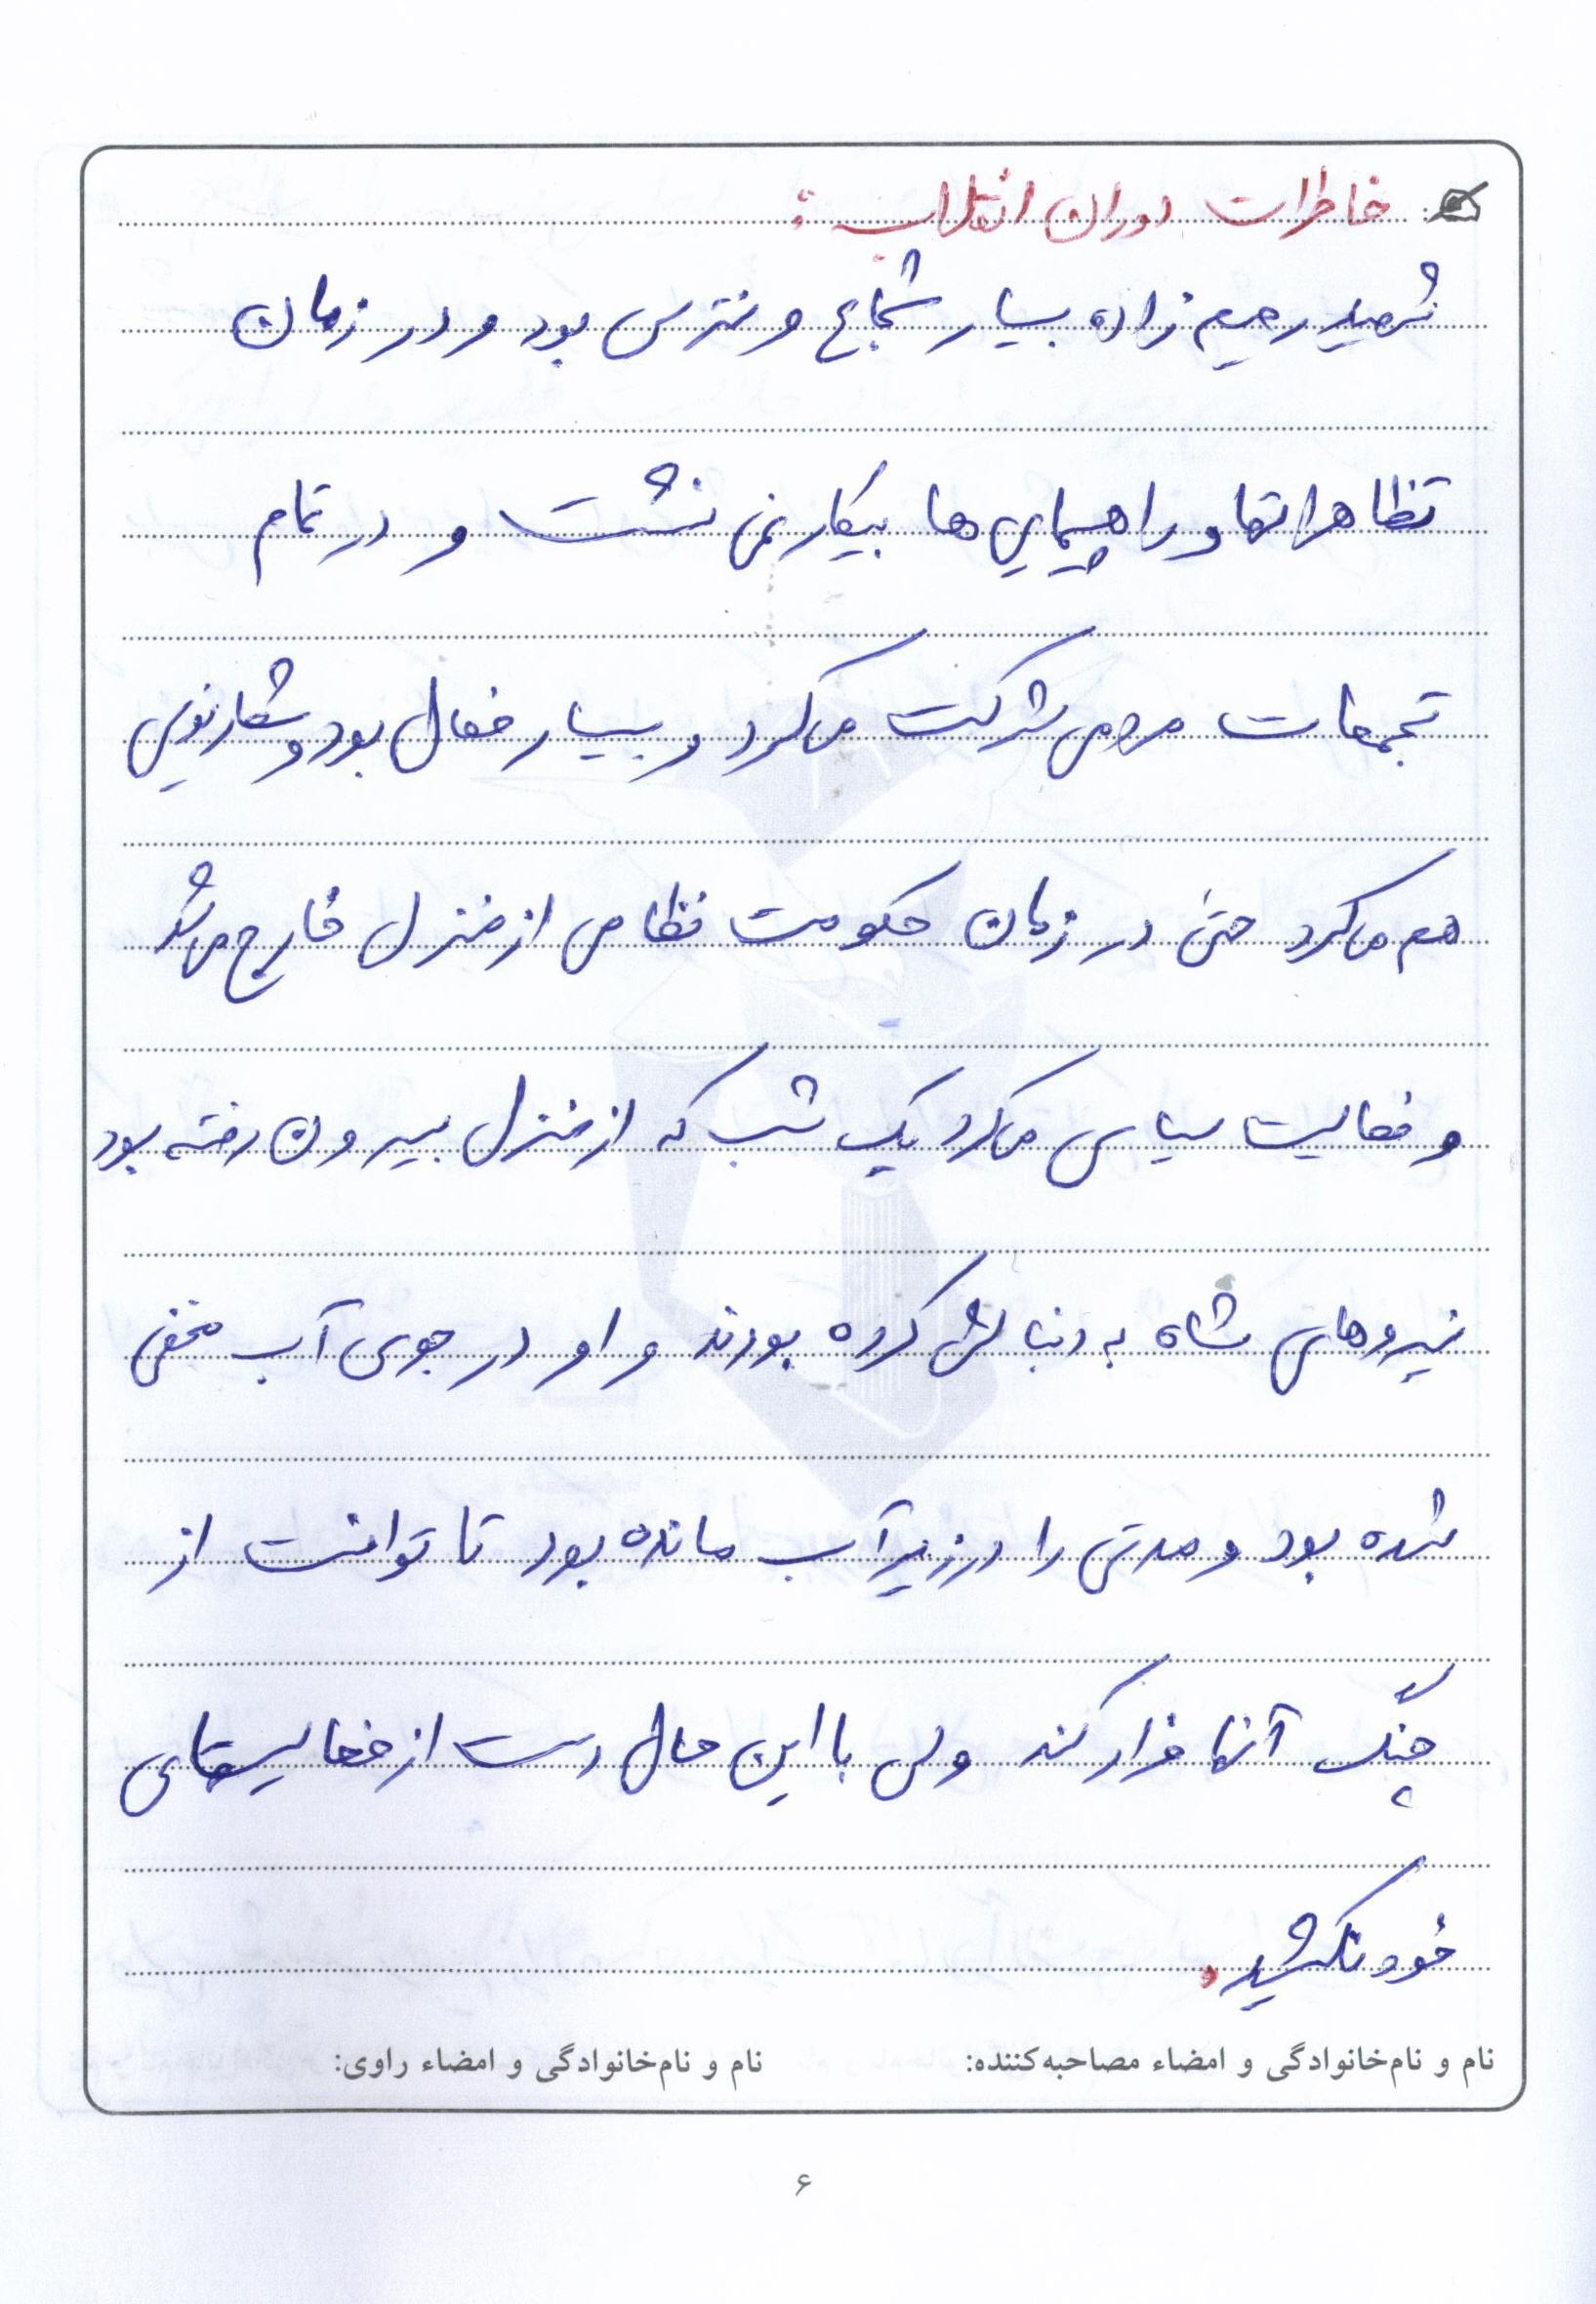 خاطرات دوران انقلاب :
شهید رحیم زاده بسیار شجاع و نترس بود و در زمان
تظاهراتها و راهپیمایی ها بیکار نمی نشست و در تمام
تجمعات مردمی شرکت می کرد و بسیار فعال بود و شعار نویسی
هم می کرد حتی در زمان حکومت نظامی از منزل خارج می شد
و فعالیت سیاسی می کرد یک شب که از منزل بیرون رفته بود
نیروهای شاه به دنبالش کرده بودند و او در جوی آب مخفی
شده بود و مدتی را در زیر آب مانده بود تا توانست از
چنگ آنها فرار کند ولی با این حال دست از فعالیتهای
خود نکشید.
نام و نام‌خانوادگی و امضاء مصاحبه‌کننده: نام و نام‌خانوادگی و امضاء راوی:
۶